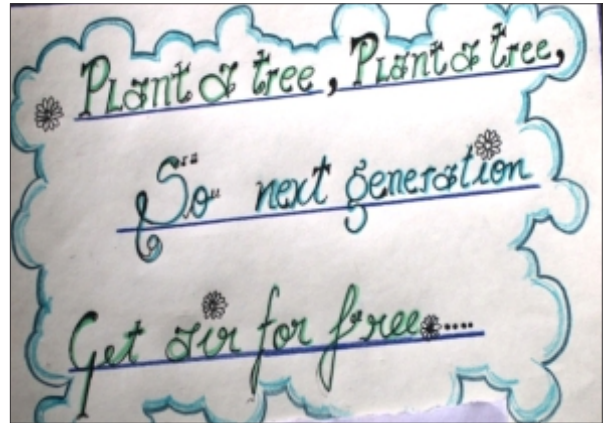 Plant a tree, Plant a tree,
So next generation
Get air for free.....